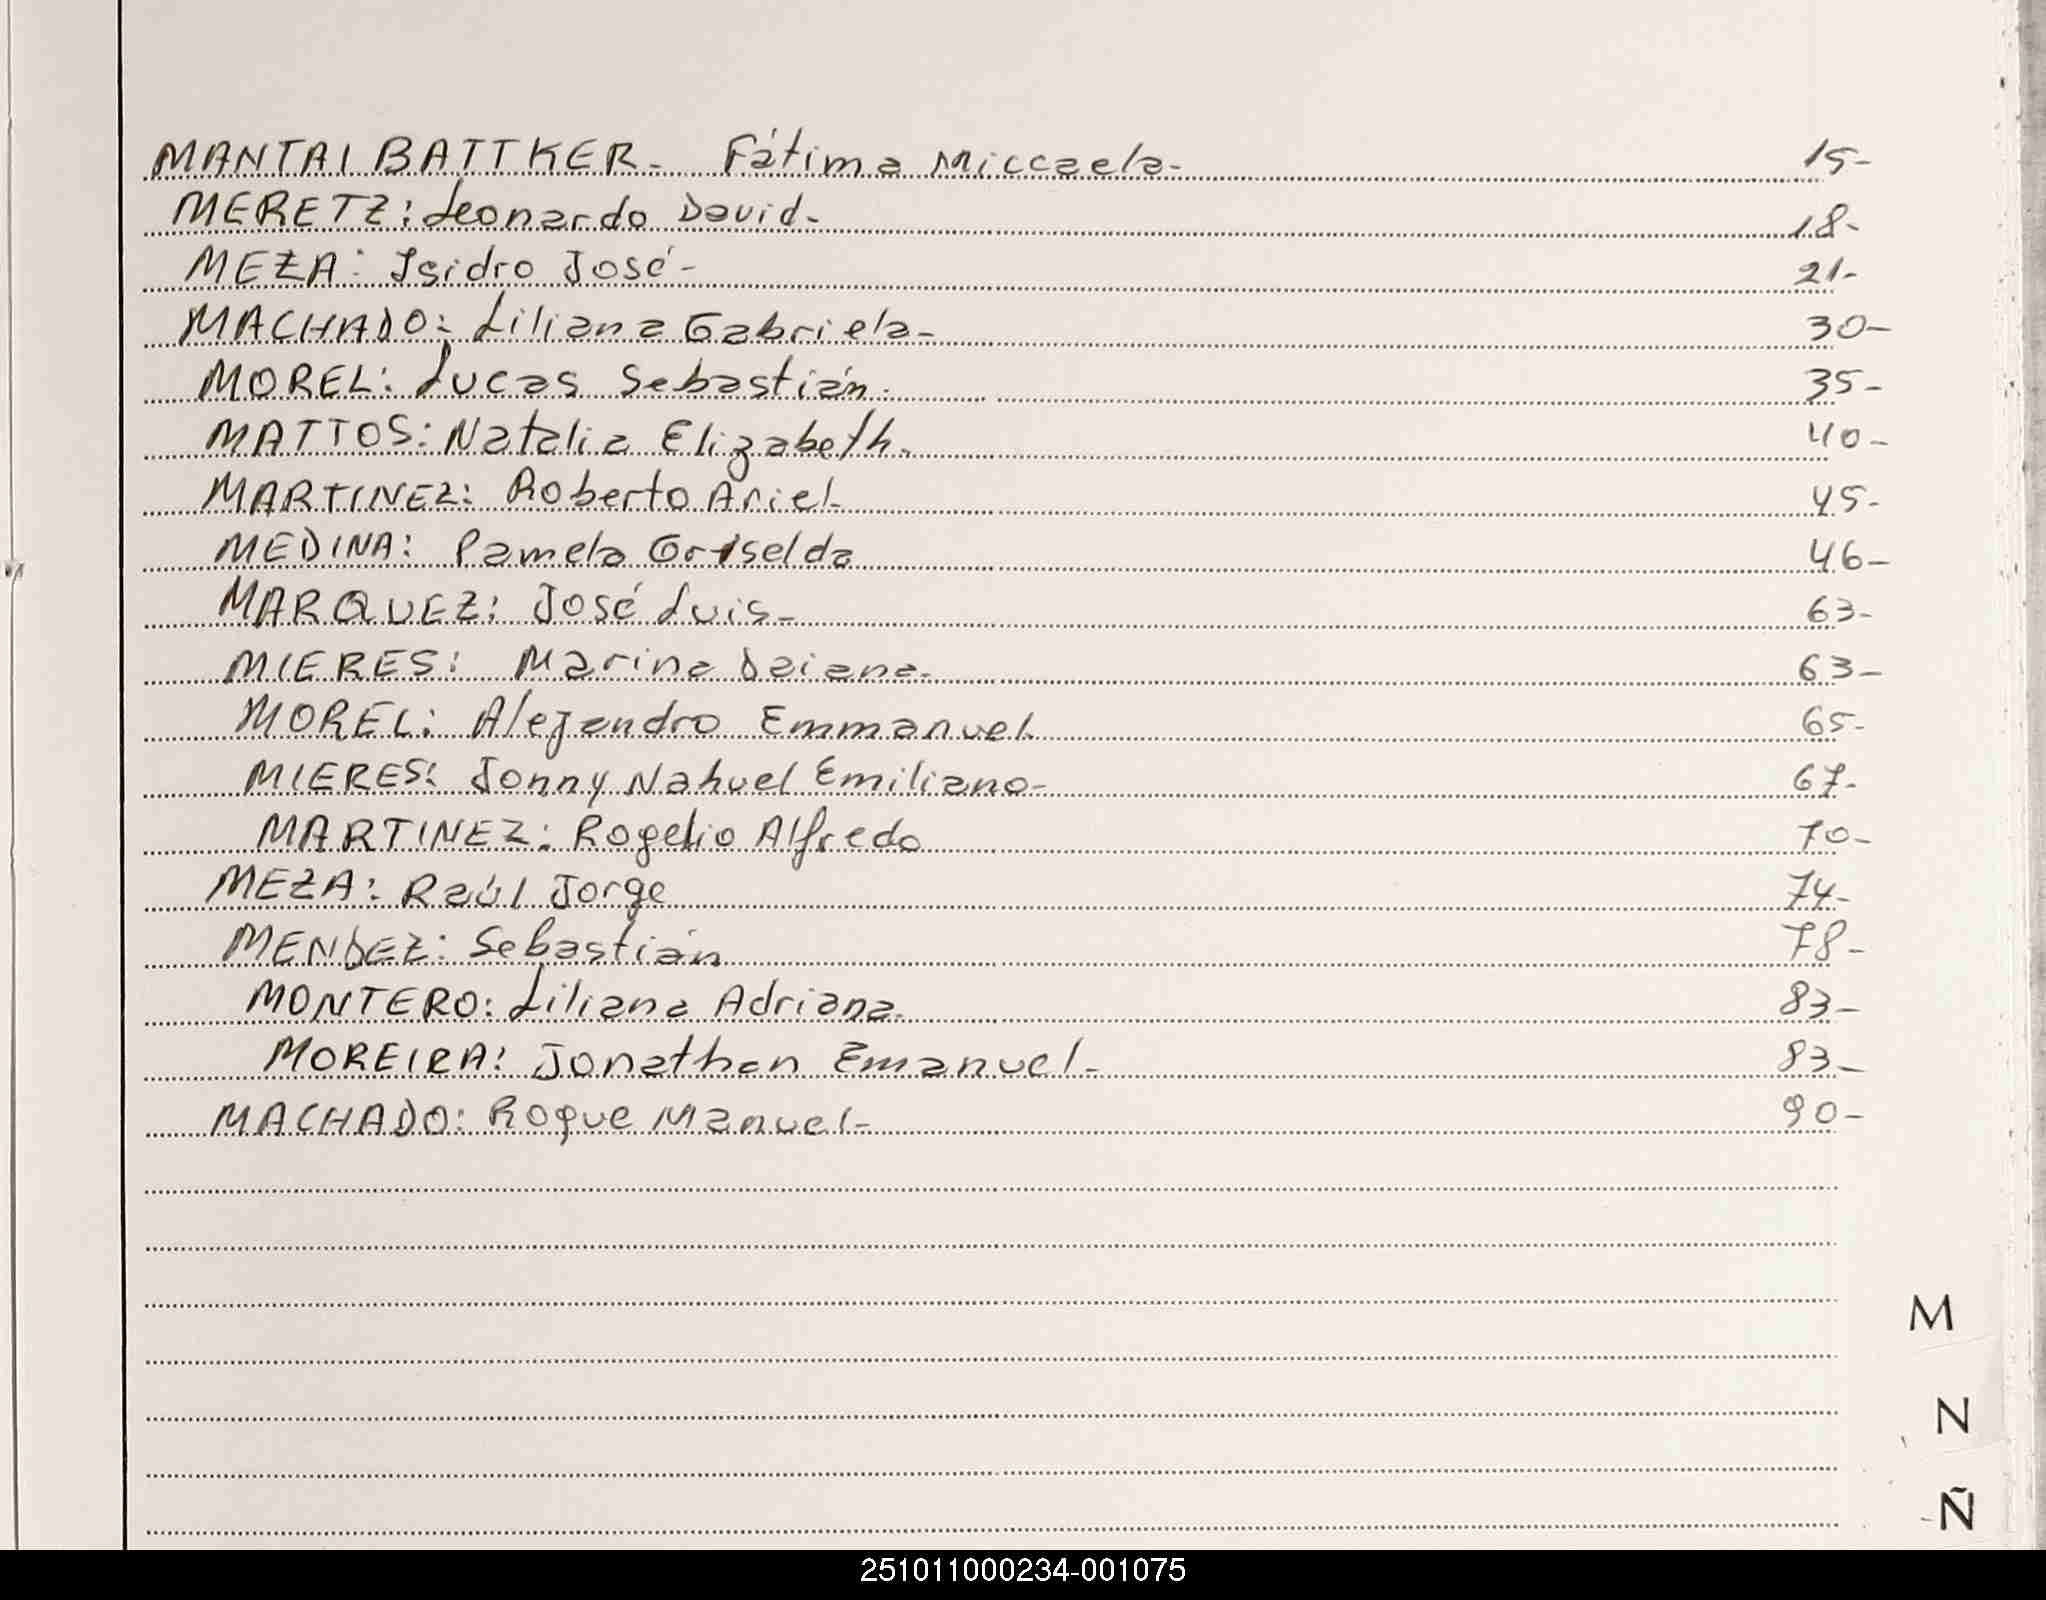 MANTAI BATTKER- Fátima Miccaela- 15-
MERETZ: Leonardo David- 18-
MEZA: Isidro José- 21-
MACHADO: Liliana Gabriela- 30-
MOREL: Lucas Sebastián. 35-
MATTOS: Natalia Elizabeth. 40-
MARTINEZ: Roberto Ariel- 45-
MEDINA: Pamela Griselda 46-
MARQUEZ: José Luis- 63-
MIERES: Marina Daiana- 63-
MOREL: Alejandro Emmanuel. 65-
MIERES: Jonny Nahuel Emiliano- 67-
MARTINEZ: Rogelio Alfredo 70-
MEZA: Raúl Jorge 74-
MENDEZ: Sebastián 78-
MONTERO: Liliana Adriana. 83-
MOREIRA: Jonathan Emanuel- 83-
MACHADO: Roque Manuel- 90-
M
N
Ñ
251011000234-001075